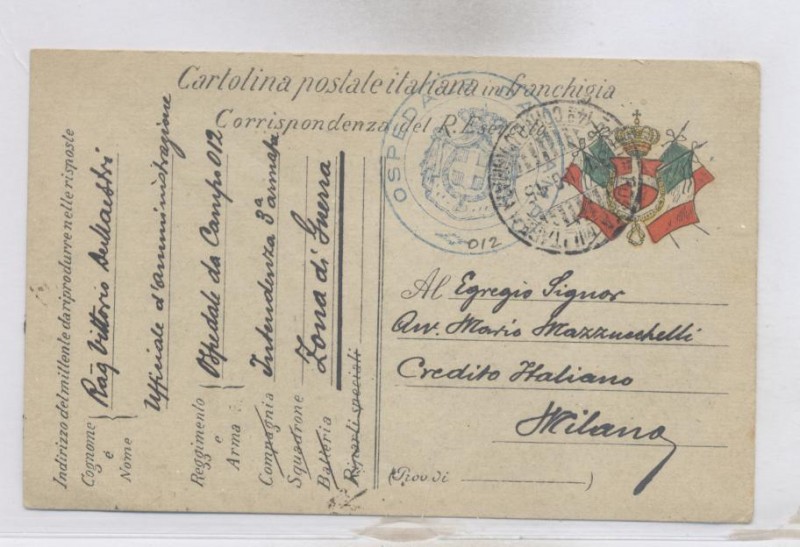 Cartolina postale italiana in franchigia
Corrispondenza del R. Esercito
OSPEDA
012
Al Egregio Signor
Avv. Mario Mazzucchelli
Credito Italiano
Milano
(Prov. di
Indirizzo del mittente da riprodurre nelle risposte
Cognome e Nome
Rag Vittorio
Ufficiale d'amministrazione
Reggimento e Arma
Ospedale da Campo 012
Compagnia
Intendenza 3ª armata
Squadrone
Zona di Guerra
Batteria
Riparti speciali